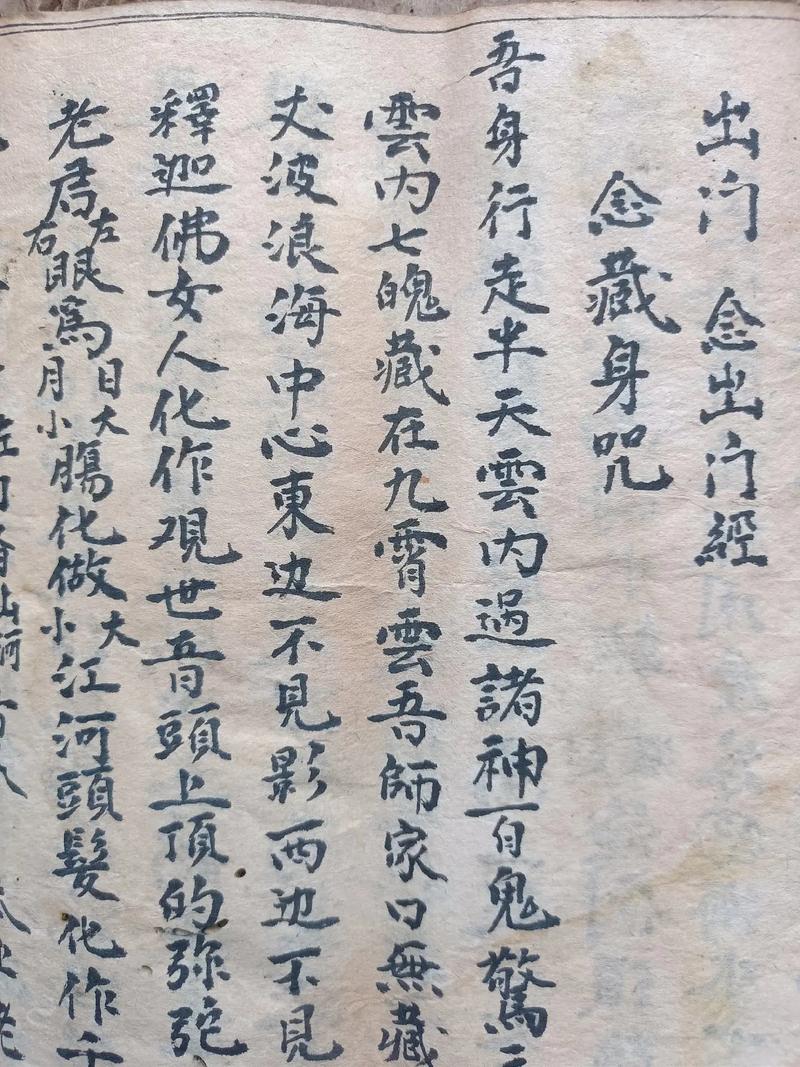 出门　念出门經
念藏身咒
吾身行走半天雲内過諸神百鬼驚
雲内七魄藏在九霄雲吾師家口無藏
丈波浪海中心東边不見影西边不見
釋迦佛女人化作观世音頭上頂的弥陀
老君左右眼爲日月大小腸化做大小江河頭髮化作千